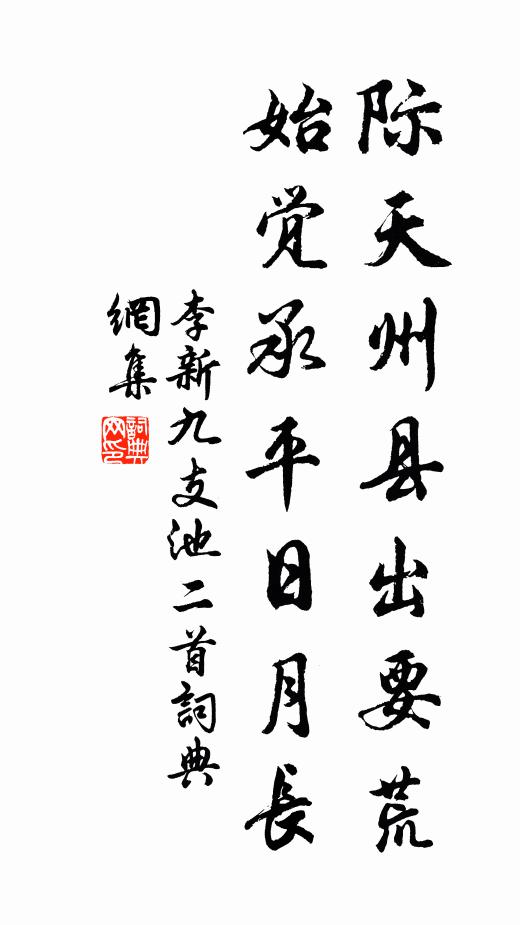 际天州县出要荒
始觉承平日月長
李新九支池二首詞典
網集
詞典
网印